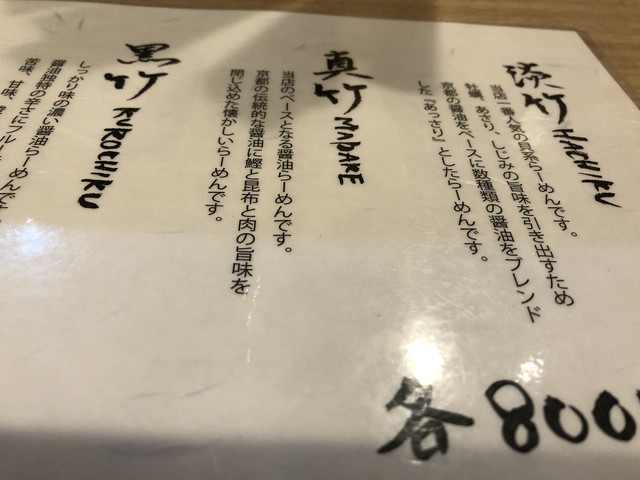 淡竹 HACHIKU
当店一番人気の貝系らーめんです。
牡蠣、あさり、しじみの旨味を引き出すため
京都の醤油をベースに数種類の醤油をブレンド
した『あっさり』としたらーめんです。
真竹 MADAKE
当店のベースとなる醤油らーめんです。
京都の伝統的な醤油に鰹と昆布と肉の旨味を
閉じ込めた懐かしいらーめんです。
黒竹 KUROCHIKU
しっかり味の濃い醤油らーめんです
醤油独特の辛さにフル
苦味、甘味、
各800